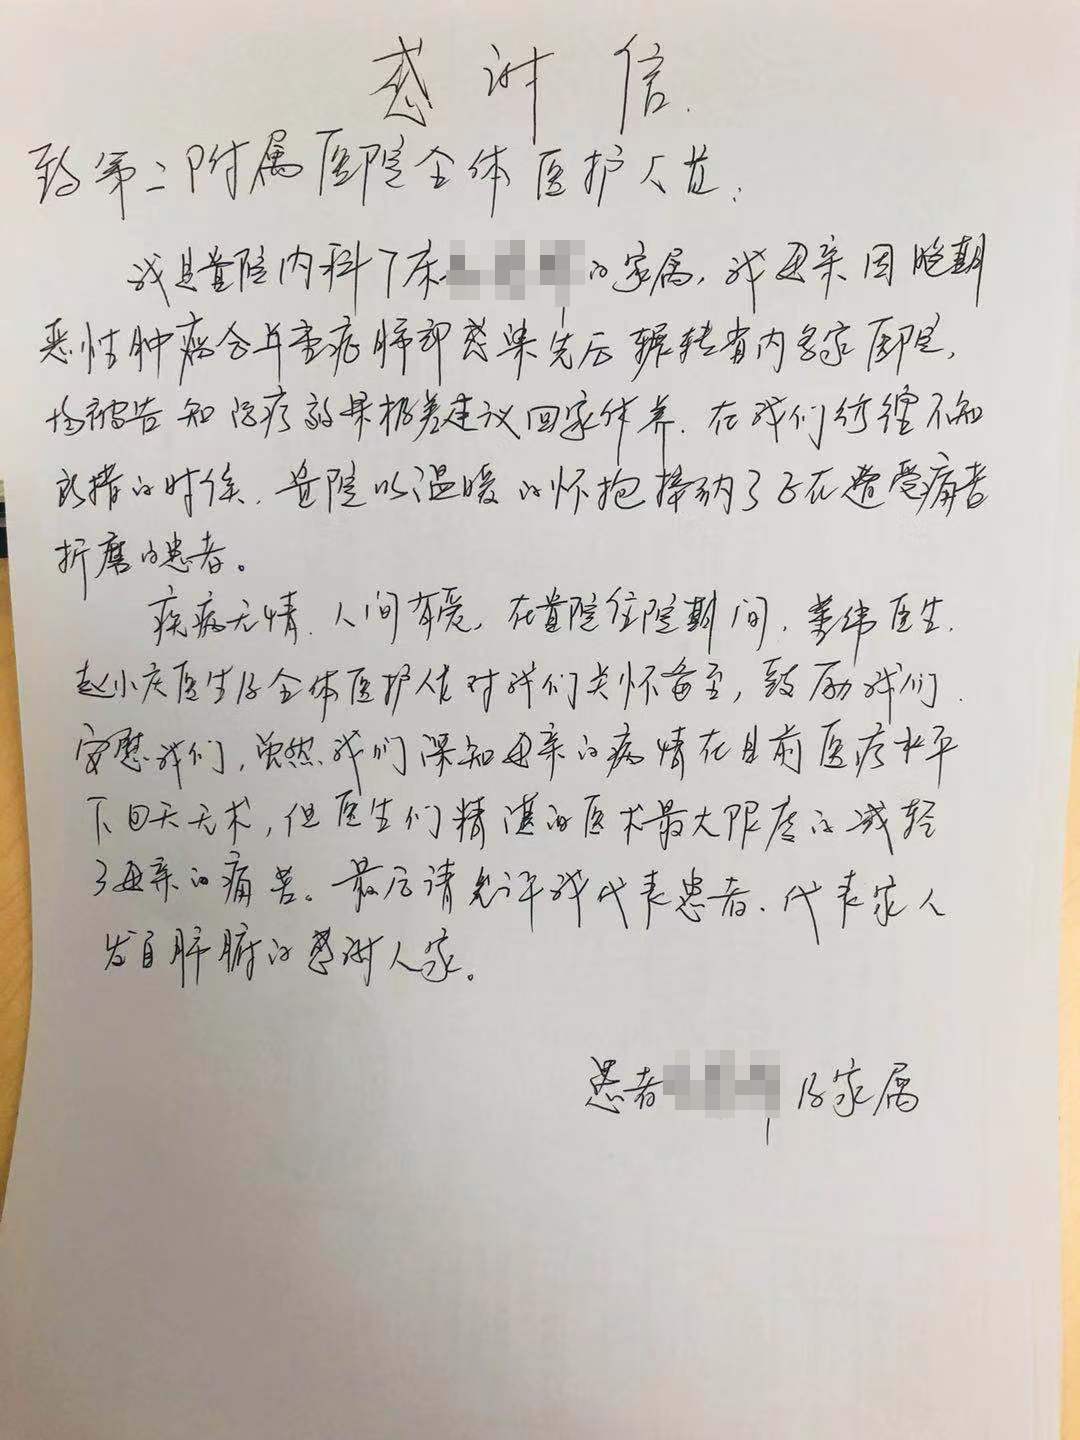 感谢信
致第二附属医院全体医护人员:
我是贵院内科7床的家属,我母亲因晚期
恶性肿瘤合并重症肺部感染先后辗转省内多家医院,
均被告知治疗效果极差建议回家休养.在我们彷徨不知
所措的时候.贵院以温暖的怀抱接纳了正在遭受病苦
折磨的患者。
疾病无情.人间有爱,在贵院住院期间,姜伟医生.
赵小庆医生及全体医护人员对我们关怀备至,鼓励我们.
安慰我们,虽然我们深知母亲的病情在目前医疗水平
下回天无术,但医生们精湛的医术最大限度的减轻
了母亲的痛苦。最后请允许我代表患者.代表家人
发自肺腑的感谢大家。
患者及家属